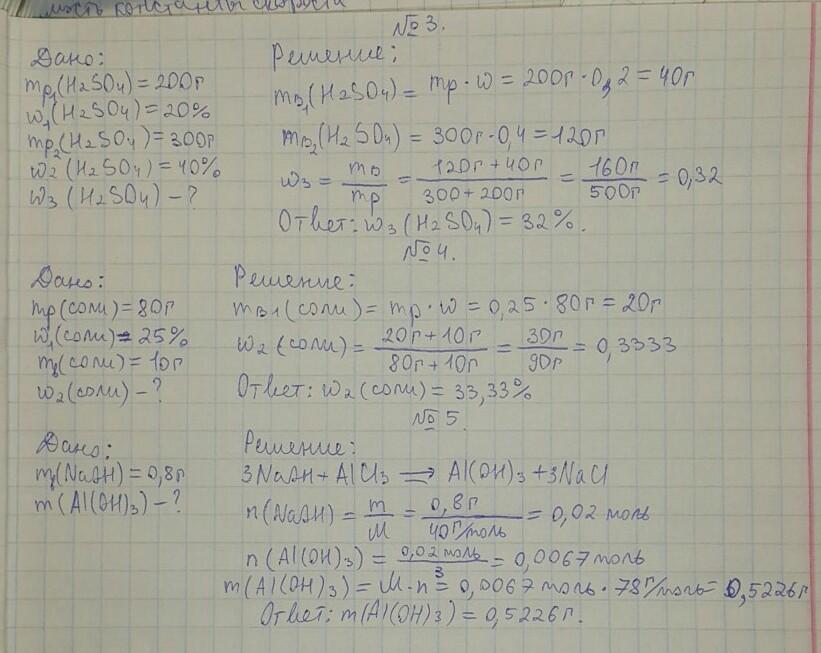 мость константы скорости
№3.
Дано:
mр1(H2SO4)=200г
w1(H2SO4)=20%
mр2(H2SO4)=300г
w2(H2SO4)=40%
w3(H2SO4)-?
Решение:
mв1(H2SO4)= mр·w=200г·0,2=40г
mв2(H2SO4)=300г·0,4=120г
w3 = mв/mр = 120г+40г/300+200г = 160г/500г = 0,32
Ответ: w3(H2SO4)=32%.
№4.
Дано:
mр(соли)=80г
w1(соли)=25%
mв(соли)=10г
w2(соли)-?
Решение:
mв1(соли)= mр·w=0,25·80г=20г
w2(соли)= 20г+10г/80г+10г = 30г/90г = 0,3333
Ответ: w2(соли)=33,33%
№5.
Дано:
mв(NaOH)=0,8г
m(Al(OH)3)-?
Решение:
3NaOH+AlCl3 ⟶ Al(OH)3+3NaCl
n(NaOH)= m/M = 0,8г/40г/моль = 0,02 моль
n(Al(OH)3)= 0,02 моль/3 = 0,0067 моль
m(Al(OH)3)=M·n=0,0067 моль·78г/моль=0,5226г
Ответ: m(Al(OH)3)=0,5226г.